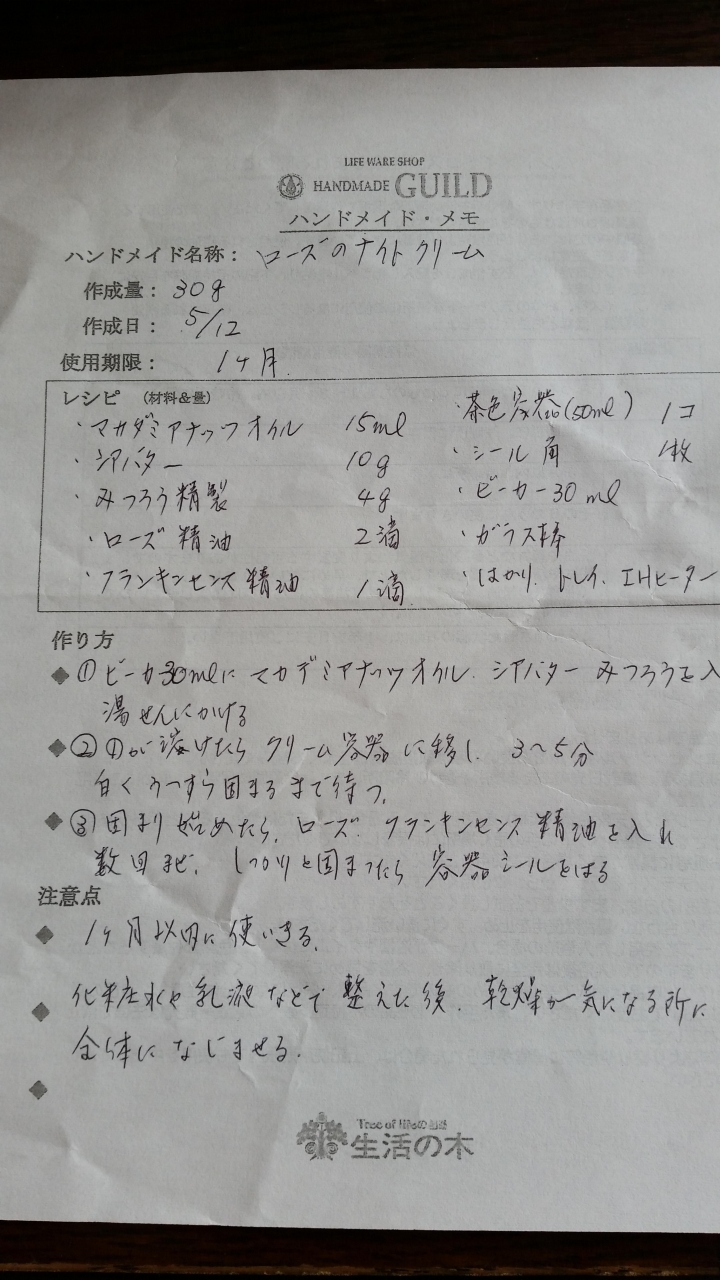 LIFE WARE SHOP
HANDMADE GUILD
ハンドメイド・メモ
ハンドメイド名称： ローズのナイトクリーム
作成量： 30g
作成日： 5/12
使用期限： 1ヶ月
レシピ （材料&量）
・マカダミアナッツオイル 15ml
・シアバター 10g
・みつろう精製 4g
・ローズ精油 2滴
・フランキンセンス精油 1滴
・茶色容器(50ml) 1コ
・シール角 1枚
・ビーカー30ml
・ガラス棒
・はかり、トレイ、IHヒーター
作り方
◆①ビーカ30mlにマカデミアナッツオイル、シアバター みつろうを入
湯せんにかける
◆②①が溶けたらクリーム容器に移し、3〜5分
白くうっすら固まるまで待つ。
◆③固まり始めたら、ローズ、フランキンセンス精油を入れ
数回まぜ、しっかりと固まったら容器シールをはる
注意点
◆ 1ヶ月以内に使いきる。
◆ 化粧水や乳液などで整えた後、乾燥が気になる所に
全体になじませる。
◆
Tree of lifeの
生活の木